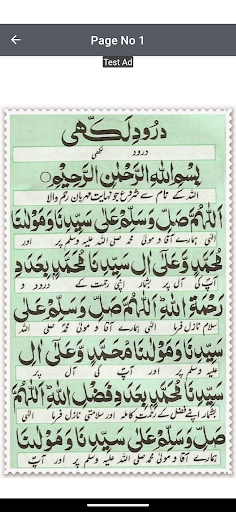 Page No 1
Test Ad
دُرُودِ لَكِّهِى
درود لکھی
بِسْمِ اللهِ الرَّحْمٰنِ الرَّحِيْمِ
اللہ کے نام سے شروع جو نہایت مہربان رحم والا
اَللّٰهُمَّ صَلِّ وَسَلِّمْ عَلٰى سَيِّدِنَا وَمَوْلٰنَا
الٰہی ہمارے آقا و مولیٰ محمد صلی اللہ علیہ وسلم پر اور
مُحَمَّدٍ وَّعَلٰى اٰلِ سَيِّدِنَا مُحَمَّدٍ بِعَدَدِ
آپ کی آل پر بشمار اپنی رحمت کے درود و
رَحْمَةِ اللهِ اَللّٰهُمَّ صَلِّ وَسَلِّمْ عَلٰى
سلام نازل فرما الٰہی ہمارے آقا و مولیٰ محمد صلی اللہ
سَيِّدِنَا وَمَوْلٰنَا مُحَمَّدٍ وَّعَلٰى اٰلِ
علیہ وسلم پر اور آپ کی آل پر
سَيِّدِنَا مُحَمَّدٍ بِعَدَدِ فَضْلِ اللهِ اَللّٰهُمَّ
بشمار اپنے فضل کے رحمت کاملہ اور سلامتی نازل فرما الٰہی
صَلِّ وَسَلِّمْ عَلٰى سَيِّدِنَا وَمَوْلٰنَا
ہمارے آقا و مولیٰ محمد صلی اللہ علیہ وسلم پر اور آپ